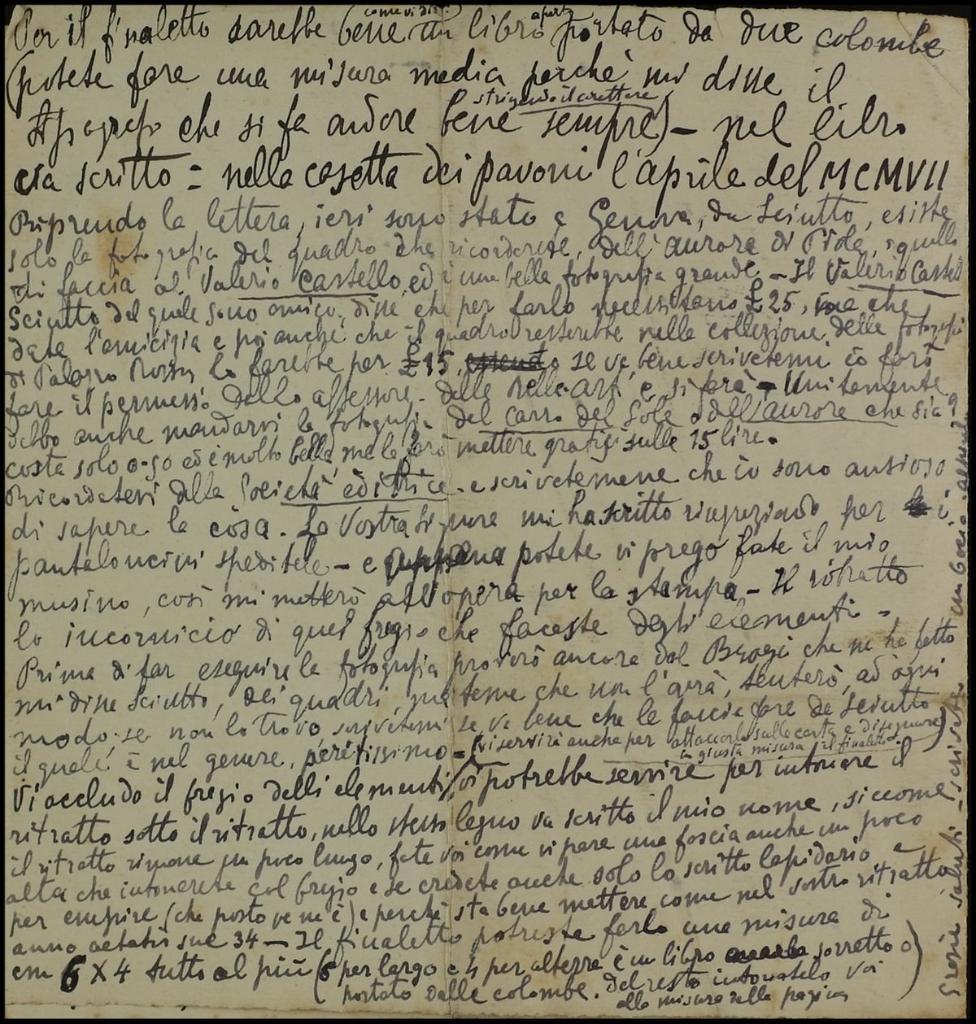 Per il finaletto sarebbe bene come vi dissi un libro aperto portato da due colombe
(potete fare una misura media perchè mi disse il
tipografo che si fa andare bene stringendo il carattere sempre) - nel libro
sia scritto = nella casetta dei pavoni l'aprile del MCMVII
Riprendo la lettera, ieri sono stato a Genova, da Sciutto, esiste
solo la fotografia del quadro che ricorderete, dell'aurora di Piola, quello
di faccia al Valerio Castello, ed è una bella fotografia grande. - Il Valerio Castello
Sciutto del quale sono amico, disse che per farlo necessitano £ 25, ma che
date l'amicizia e poi anche che il quadro resterebbe nella collezione delle fotografie
di Palazzo Rosso lo farebbe per £ 15, se va bene scrivetemi io farò
fare il permesso dello assessore delle Belle arti e si farà - Unitamente
debbo anche mandarvi la fotografia del carro del Sole o dell'aurora che sia
costa solo 0.90 ed è molto bella, ma la farò mettere gratis sulle 15 lire.
Ricordatevi della Società editrice - e scrivetemene che io sono ansioso
di sapere la cosa. La Vostra Signora mi ha scritto ringraziando per i
pantaloncini speditele - e appena potete vi prego fate il mio
musino, così mi metterò all'opera per la stampa - Il ritratto
lo incornicio di quel fregio che faceste degli elementi -
Prima di far eseguire la fotografia proverò ancora dal Brogi che ne ha fatto
mi disse Sciutto, dei quadri, ma teme che non l'avrà, tenterò, ad ogni
modo se non lo trovo scrivetemi se va bene che le faccia fare da Sciutto
il quale è nel genere, peritissimo - (vi servirà anche per attaccarlo sulla carta e disegnare
in giusta misura il finaletto)
Vi accludo il fregio delli elementi, vi potrebbe servire per intonare il
ritratto sotto il ritratto, nello stesso legno va scritto il mio nome, siccome
il ritratto rimane un poco lungo, fate voi come vi pare una fascia anche un poco
alta che intonerete col fregio e se credete anche solo lo scritto lapidario
per empire (che posto ve n'è) e perchè sta bene mettere come nel vostro ritratto
anno aetatis sue 34 - Il finaletto potreste farlo una misura di
cm 6 X 4 tutto al più (6 per largo e 4 per altezza è un libro sorretto o
portato dalle colombe. Del resto intonatelo voi
alla misura della pagina)
Grazie, saluti - scrivete